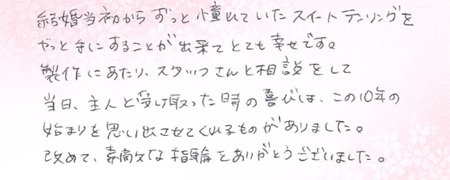 結婚当初からずっと憧れていたスイートテンリングを
やっと手にすることが出来てとても幸せです。
製作にあたり、スタッフさんと相談をして
当日、主人と受け取った時の喜びは、この10年の
始まりを思い出させてくれるものがありました。
改めて、素敵な指輪をありがとうございました。